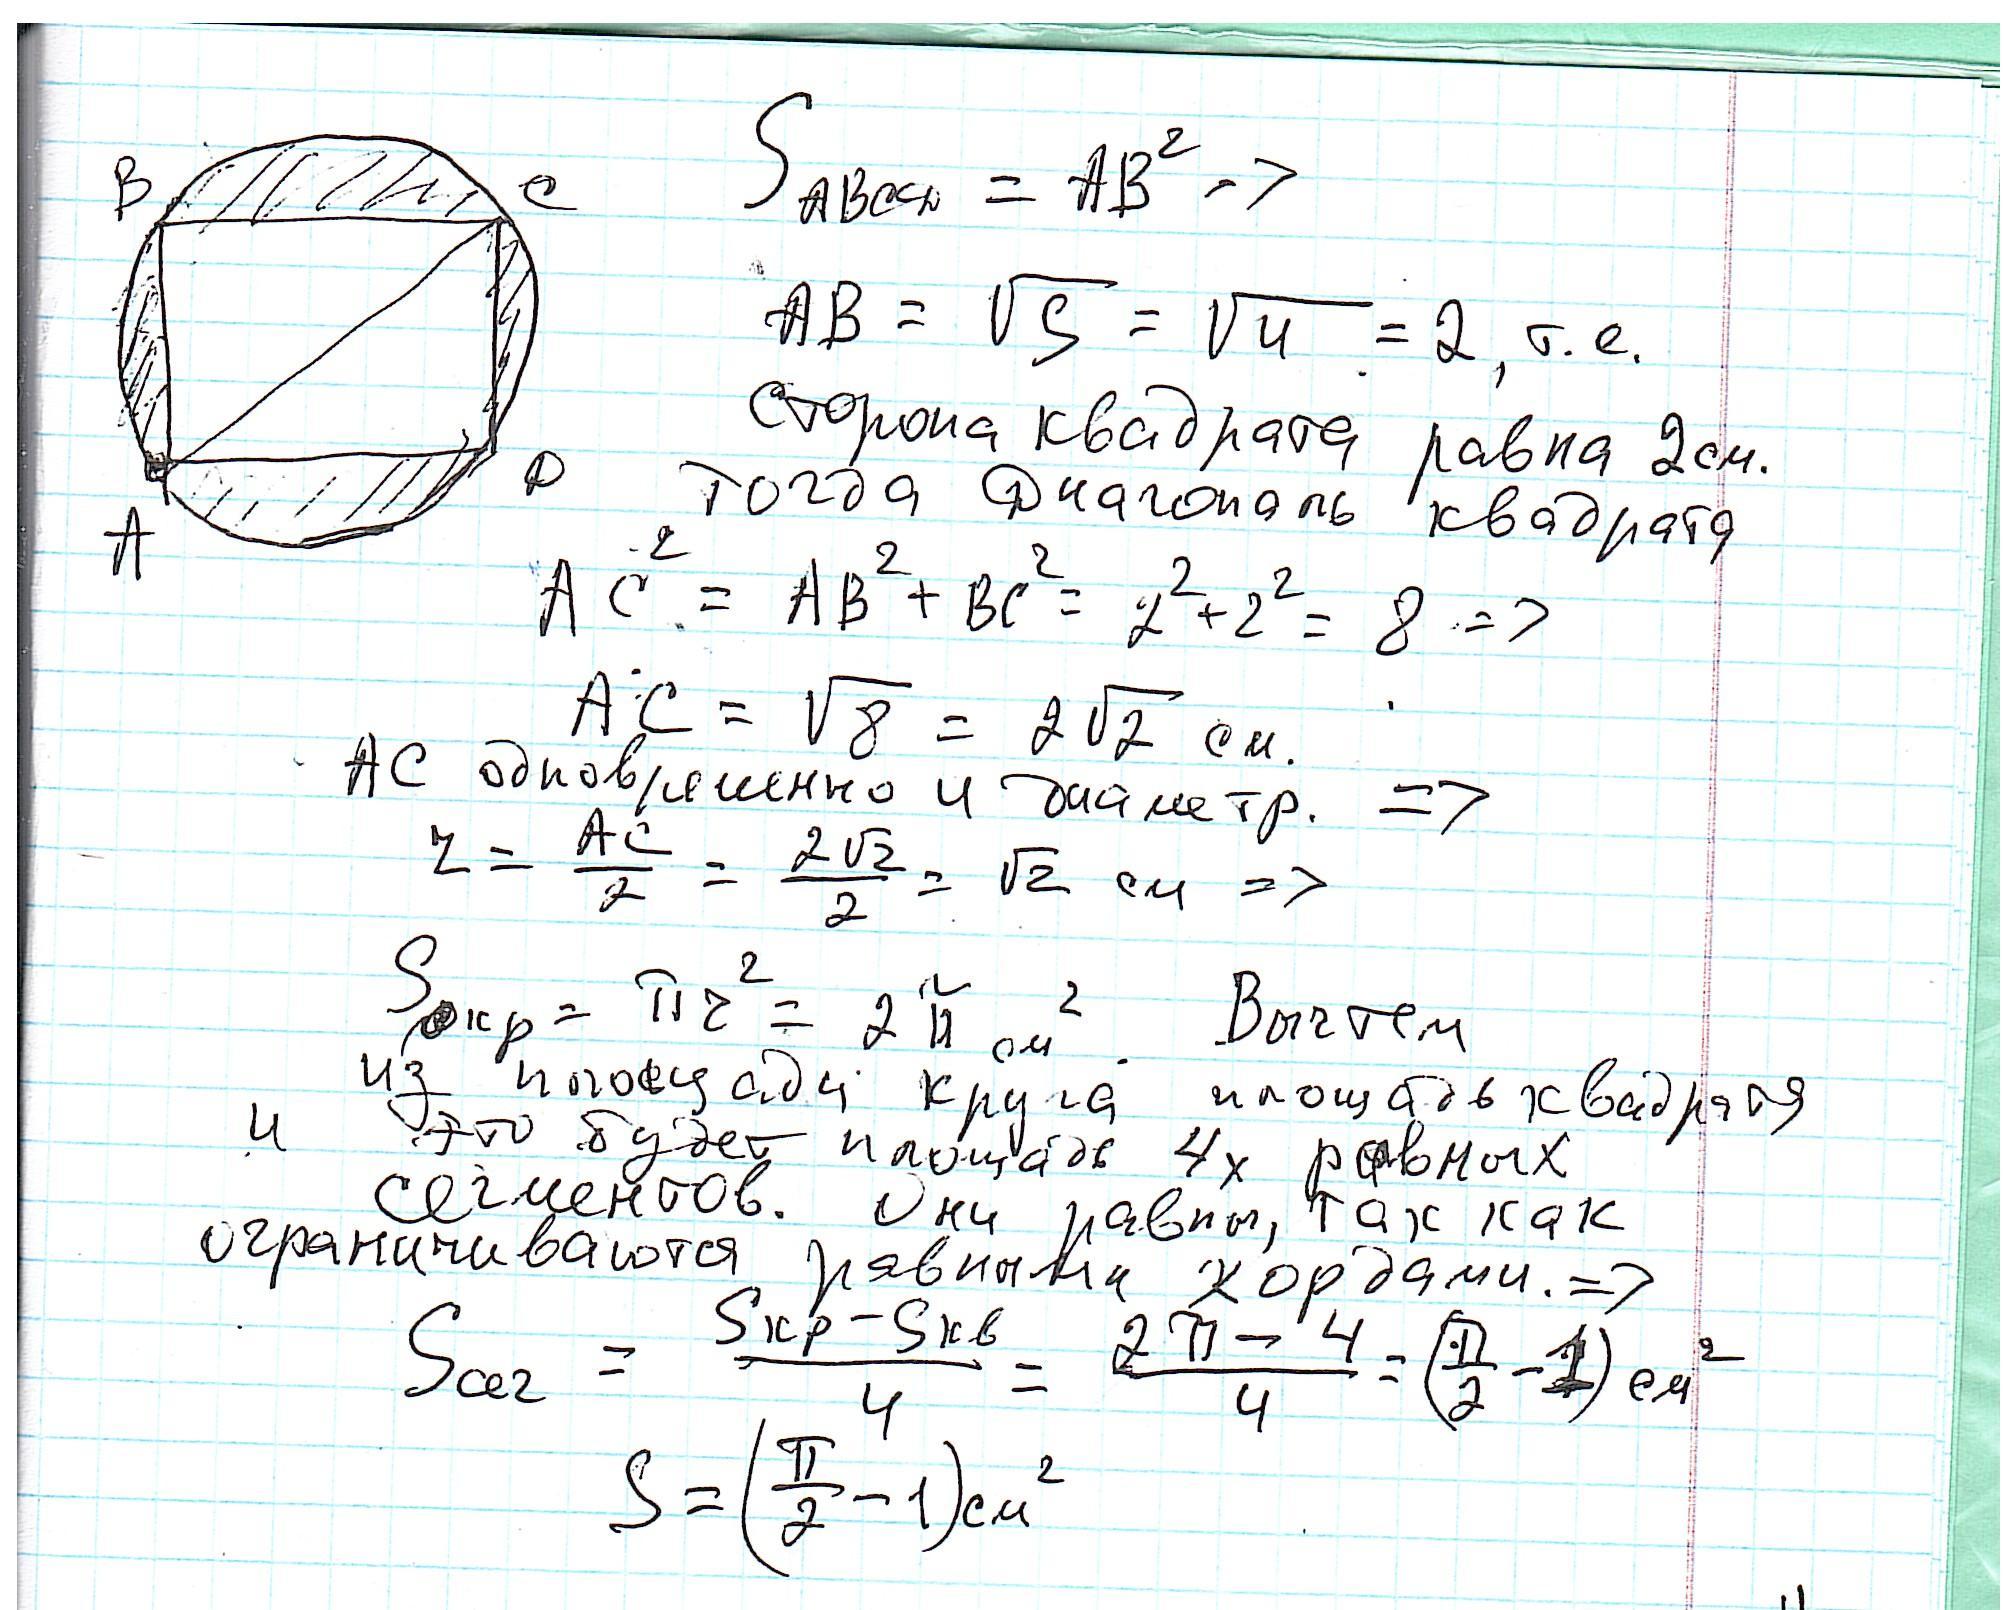 B
C
A
D
S ABCD = AB² =>
AB = √S = √4 = 2, т.е.
сторона квадрата равна 2см.
Тогда диагональ квадрата
AC² = AB² + BC² = 2² + 2² = 8 =>
AC = √8 = 2√2 см.
AC одновременно и диаметр. =>
r = AC/2 = 2√2/2 = √2 см =>
Sокр = πr² = 2π см². Вычтем
из площади круга площадь квадрата
и это будет площадь 4х равных
сегментов. Они равны, так как
ограничиваются равными хордами. =>
Sсег = (Sкр - Sкв)/4 = (2π - 4)/4 = (π/2 - 1) см²
S = (π/2 - 1) см²